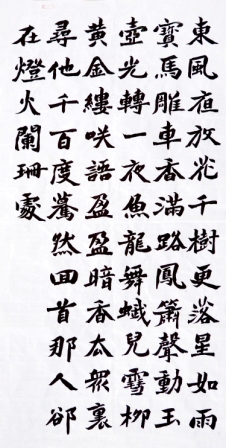 東風夜放花千樹更落星如雨
寶馬雕車香滿路鳳簫聲動玉
壺光轉一夜魚龍舞蛾兒雪柳
黃金縷咲語盈盈暗香去衆裏
尋他千百度驀然回首那人卻
在燈火闌珊處